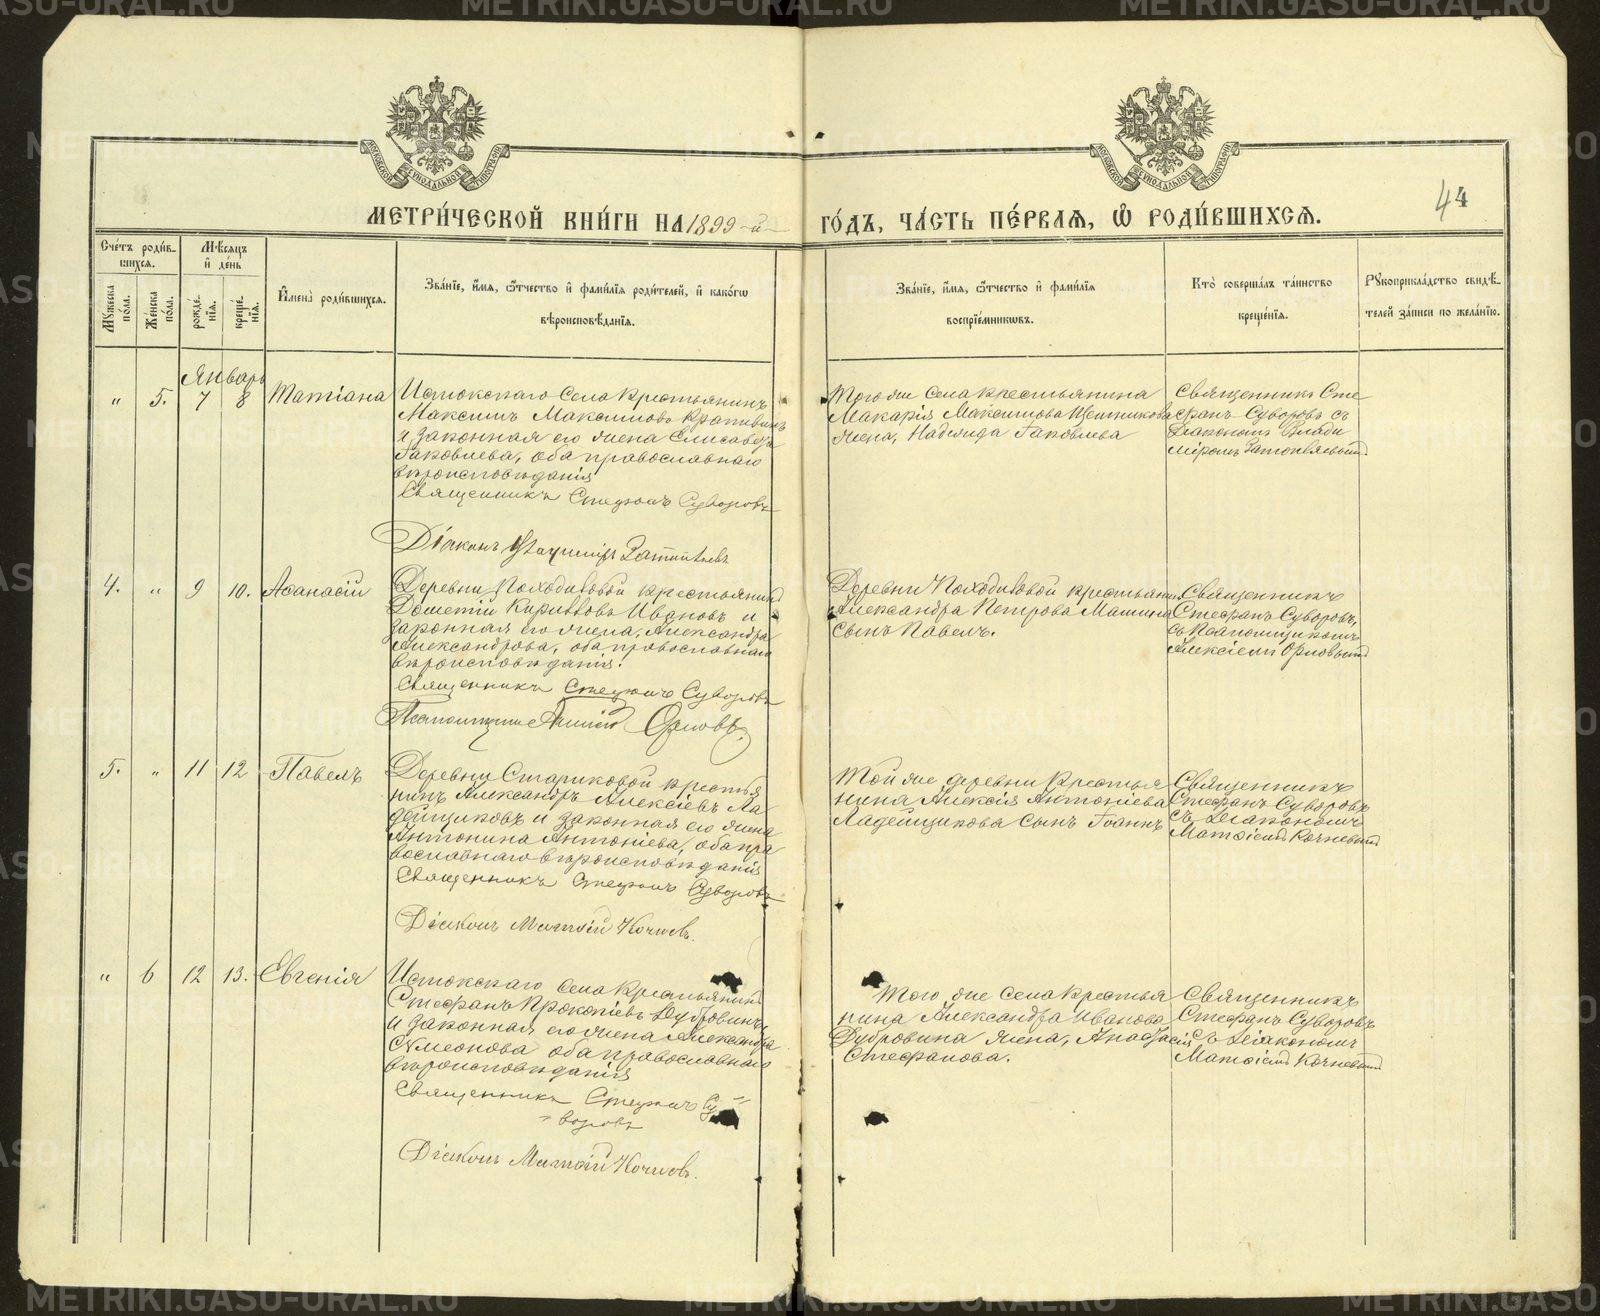 МЕТРИ́ЧЕСКОЙ КНИ́ГИ НА 1899-й
ГО́ДЪ, ЧА́СТЬ ПЕ́РВАЯ, Ѽ РОДИ́ВШИХСЯ.
44
Сче́тъ роди́в-
шихся.
Му́жеска по́ла.
Же́нска по́ла.
Мѣ́сяцъ и де́нь
рожде́нїя.
креще́нїя.
И҆мена̀ роди́вшихся.
Зва́нїе, и҆́мя, ѻ҆́тчество и҆ фами́лїя роди́телей, и҆ како́гѡ
вѣроисповѣ́данїя.
Зва́нїе, и҆́мя, ѻ҆́тчество и҆ фами́лїя
воспрїе́мниковъ.
Кто̀ соверша́лъ та́инство
креще́нїя.
Рꙋкоприкла́дство свидѣ́-
телей за́писи по жела́нїю.
Январь
„ 5. 7 8 Татіана
Истокскаго Села крестьянинъ
Максимъ Максимовъ
и законная его жена Елисавета
Іаковлева, оба православнаго
вѣроисповѣданія
Священникъ Стефанъ Суворовъ
Діаконъ Владиміръ
Того же Села крестьянина
Макарія Максимова
жена, Надежда Іаковлева
Священникъ Сте
фанъ Суворовъ съ
Діакономъ Влади
міромъ
4. „ 9 10. Аѳанасій
Деревни Походиловой крестьянинъ
Дометій Кирилловъ Ивановъ и
законная его жена, Александра
Александрова, оба православнаго
вѣроисповѣданія.
Священникъ Стефанъ Суворовъ
Псаломщикъ Алексій Орловъ.
Деревни Походиловой крестьянина
Александра Петрова Машина
сынъ Павелъ.
Священникъ
Стефанъ Суворовъ,
съ Псаломщикомъ
Алексіемъ Орловымъ
5. „ 11 12 Павелъ
Деревни Стариковой крестья
нинъ Александръ Алексіевъ Ла
дейщиковъ и законная его жена
Антонина Антоніева, оба пра
вославнаго вѣроисповѣданія
Священникъ Стефанъ Суворовъ
Діаконъ Матѳій Кочневъ.
Той же деревни крестья
нина Алексія Антоніева
Ладейщикова сынъ Іоаннъ
Священникъ
Стефанъ Суворовъ
съ Діакономъ
Матѳіемъ Кочневымъ
„ 6 12 13. Евгенія
Истокскаго Села крестьянинъ
Стефанъ Прокопіевъ Дубровинъ
и законная его жена Александра
Сѵмеонова оба православнаго
вѣроисповѣданія
Священникъ Стефанъ Су=
=воровъ
Діаконъ Матѳій Кочневъ.
Того же Села крестья
нина Александра Иванова
Дубровина жена, Анастасія
Стефанова.
Священникъ
Стефанъ Суворовъ
съ Діакономъ
Матѳіемъ Кочневымъ
METRIKI.GASO-URAL.RU